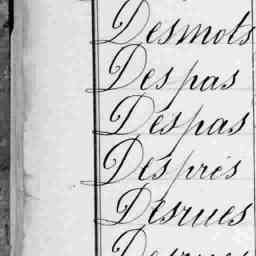 Desmots
Despas
Despas
Després
Desrues
Desrues